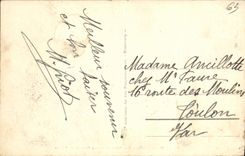 Meilleur souvenir
et bon baiser
Madame Ancillotti
chez Mr Faure
16 route des Moulins
Toulon
Var